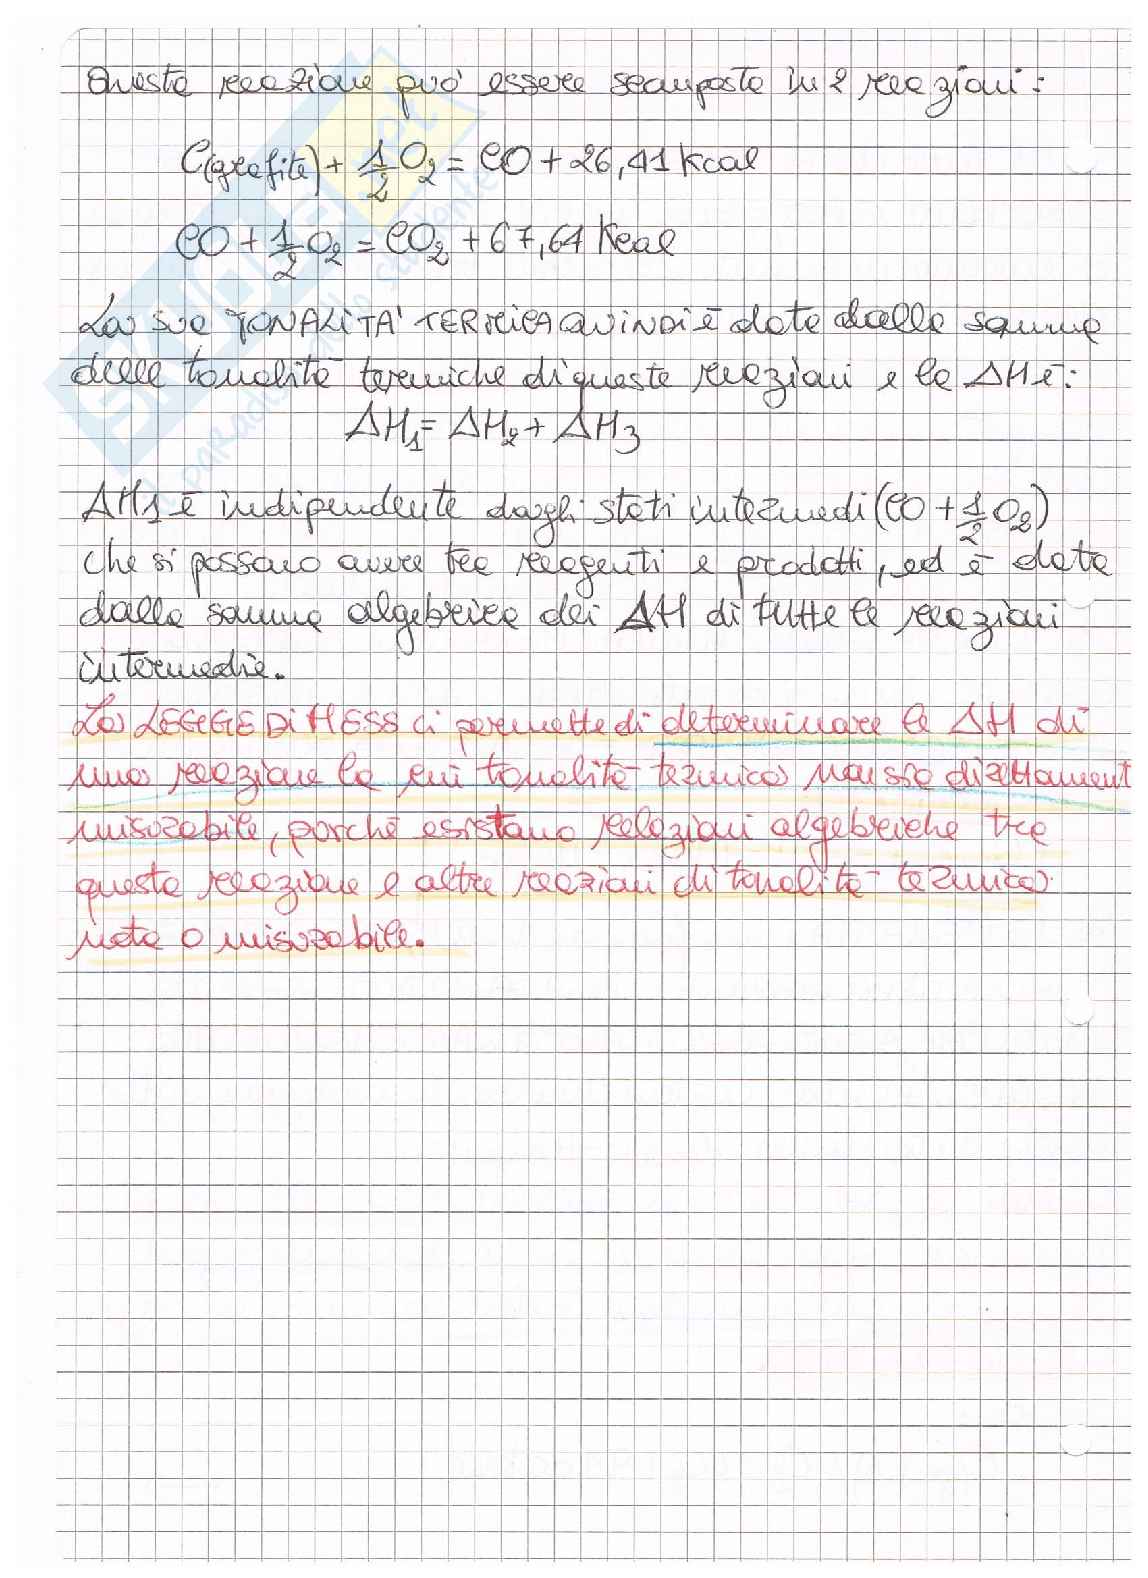 Questa reazione può essere scomposta in 2 reazioni:
C(grafite) + 1/2 O2 = CO + 26,41 kcal
CO + 1/2 O2 = CO2 + 67,64 Kcal
La sua TONALITA' TERMICA QUINDI è data dalla somma
delle tonalità termiche di queste reazioni e la ΔH è:
ΔH1 = ΔH2 + ΔH3
ΔH1 è indipendente dagli stati intermedi (CO + 1/2 O2)
che si possano avere tra reagenti e prodotti, ed è data
dalla somma algebrica dei ΔH di tutte le reazioni
intermedie.
La LEGGE Di HESS ci permette di determinare la ΔH di
una reazione la cui tonalità termica non sia direttament
misurabile, perchè esistano relazioni algebriche tra
questa reazione e altre reazioni di tonalità termica
nota o misurabile.
SKUOLA.net
il paradiso dello studente